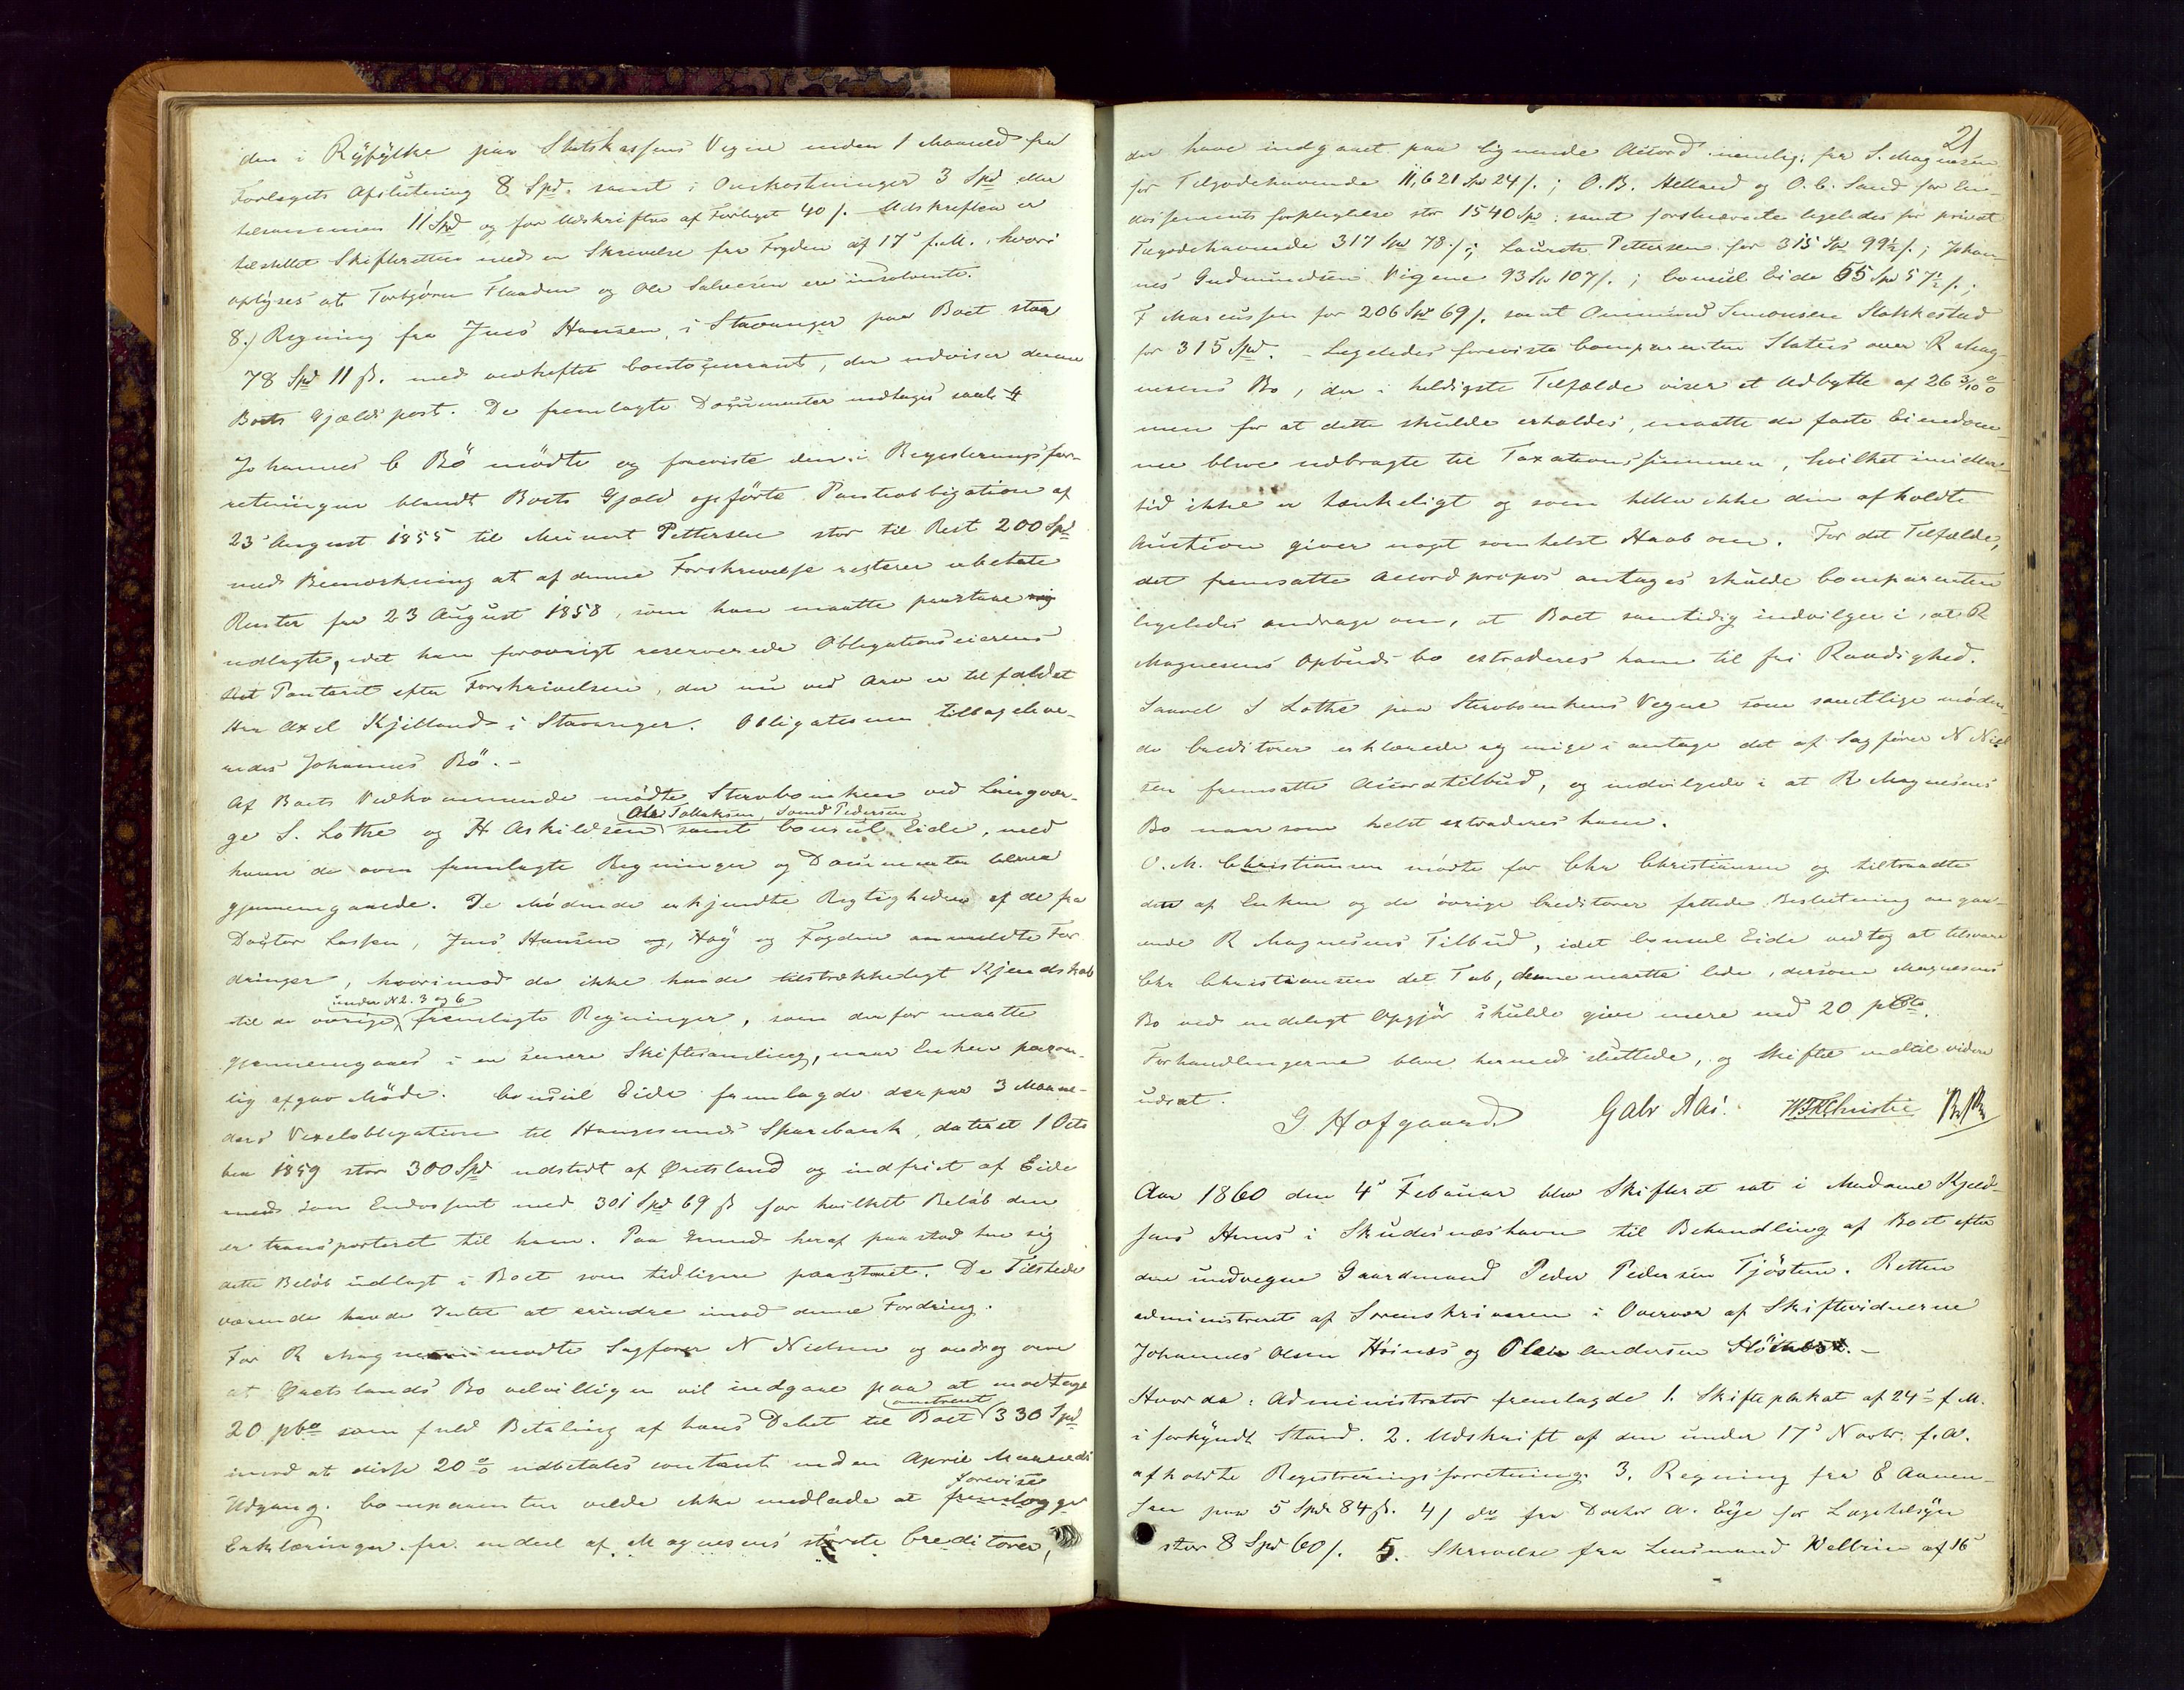 den i Ryfylke paa Statskassens Vegne inden 1 Maaned fra
Forligets Afslutning 8 Spd. samt i Omkostninger 3 Spd eller
tilsammen 11 Spd og for Udskriften af Forliget 40 ß. Udskriften er
tilstillet Skifteretten med en Skrivelse fra Fogden af 17' f.M., hvori
oplyses at Torbjørn Flaaden og Ole Salvesen ere insolvente.
8.) Regning fra Jens Hansen i Stavanger paa Boet stor
78 Spd 11 ß. med vedheftet Contocurrant, der udviser denne
Boets Gjældspost. De fremlagte Documenter medtages saal.
Johannes C Bö mödte og foreviste den i Registreringsfor-
retningen blandt Boets Gjæld opførte Pantobligation af
23' August 1855 til Meinert Pettersen stor til Rest 200 Spd
med Bemærkning at af denne Forskrivelse resterer ubetalte
Renter fra 23 August 1858, som han maatte paastaae sig
udlagte, idet han forøvrigt reserverede Obligationseierens
Ret Panteret efter Forskrivelsen, der nu ved Arv er tilfaldet
Hr Axel Kjelland i Stavanger. Obligationen tilbageleve-
redes Johannes Bö.-
Af Boets Vedkommende mödte Stervboenken ved Laugvær-
Ole Tollaksen, Svend Pedersen
ge S. Lothe og H Askildsen samt Consul Eide, med
hvem de oven fremlagte Regninger og Documenter bleve
gjennemgaaede. De Mödende erkjendte Rigtigheden af de fra
Doctor Lassen, Jens Hansen og Høy og Fogden anmeldte For
dringer, hvorimod de ikke havde tilstrækkeligt Kjendskab
under N 2. 3 og 6
til de øvrige fremlagte Regninger, som derfor maatte
gjennemgaaes i en senere Skiftesamling, naar Enken person-
lig afgav Möde. Consul Eide fremlagde derpaa 3 Maane-
ders Vexelobligation til Haugesunds Sparebank, dateret 1 Octo
ber 1859 stor 300 Spd udstedt af Østsland og indfriet af Eide
med som Endossent med 301 Spd 69 ß for hvilket Belöb den
er transporteret til ham. Paa Grund heraf paastod han sig
dette Belöb udlagt i Boet som tidligere paastaaet. De Tilstede
værende havde Intet at erindre imod denne Fordring.
For R Magnesen mødte Sagfører N Nielsen og androg om
at Østslands Bo velvilligen vil indgaae paa at modtage
omtrent
20 pCto som fuld Betaling af hans Debet til Boet 330 Spd
imod at disse 20 % udbetales contant inden April Maaneds
forevise
Udgang. Comparenten vilde ikke undlade at fremlægge
Erklæringer fra endeel af Magnesens störste Creditorer,
21
der have indgaaet paa lignende Accord nemlig: fra S. Magnesen
for Tilgodehavende 11,621 Spd 24 ß.; O. B. Helland og O. C. Sand for En-
dossements forpligtelse stor 1540 Spd: samt forstnævnte ligeledes for privat
Tilgodehavende 317 Spd 78 ß.; Laurits Pettersen for 315 Spd 99½ ß.; Johan-
nes Gudmundsen Vigene 93 Spd 107 ß.; Consul Eide 55 Spd 57½ ß.;
F Marcussen for 206 Spd 69 ß. samt Ommund Simonsen Stakkestad
for 315 Spd. - Ligeledes foreviste Comparenten Status over R Mag-
nesens Bo, der i heldigste Tilfælde viser et Udbytte af 26 3/10 %
men for at dette skulde erholdes, maatte de faste Eiendom-
me blive udbragte til Taxationssummen, hvilket imidler-
tid ikke er tænkeligt og som heller ikke den afholdte
Auction giver nogt somhelst Haab om. For det Tilfælde,
det fremsatte Accordpropos antages skulde Comparenten
ligeledes andrage om, at Boet samtidig indvilger i, at R
Magnesens Opbudsbo extraderes ham til fri Raadighed.
S Lothe paa Stervboenkens Vegne som samtlige møden-
de Creditorer erklærede sig enige i antage det af Sagfører N Niel
sen fremsatte Accordtilbud, og indvilgede i at R Magnesens
Bo naarsomhelst extraderes ham.
O. M. Christiansen mödte for Chr Christiansen og tiltraadte
den af Enken og de övrige Creditorer fattede Beslutning angaa-
ende R Magnesens Tilbud, idet Consul Eide vedtog at tilsvare
Chr Christiansen det Tab, denne maatte lide, dersom Magnesens
Bo ved endeligt Opgjör skulde give mere end 20 pCto.
Forhandlingerne bleve hermed sluttede, og Skiftet indtil videre
udsat.
G Hofgaard. Gabr Aas. WFKChristie
Aar 1860 den 4' Februar blev Skifteret sat i Madame Kjeld-
sens Huus i Skudesnæshavn til Behandling af Boet efter
den undvegne Gaardmand Peder Pedersen Tjösten. Retten
administreret af Sorenskriveren i Overvær af Skiftevidnerne
Johannes Olsen Höines og Olen Andersen -
Hvorda: Administrator fremlagde 1. Skifteplakat af 24' f. M.
i forkyndt Stand. 2. Udskrift af den under 17' Novbr. f. A.
afholdte Registreringsforretning. 3. Regning fra E Aanen-
sen paa 5 Spd 84 ß. 4) do fra Doctor A. Eye for Lægetilsyn
stor 8 Spd 60 ß. 5. Skrivelse fra Lensmand Wellein af 16'